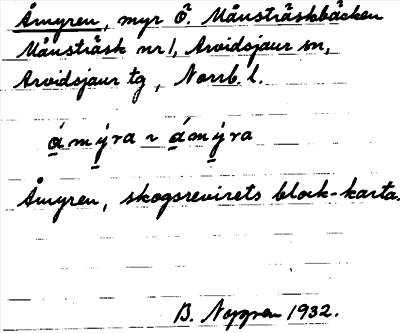 Åmyren, myr Ö. Månsträskbäcken
Månsträsk nr 1, Arvidsjaur sn,
Arvidsjaur tg, Norrb. l.
ámýra ~ ámýra
Åmyren, skogsrevirets block-karta.
B. 1932.